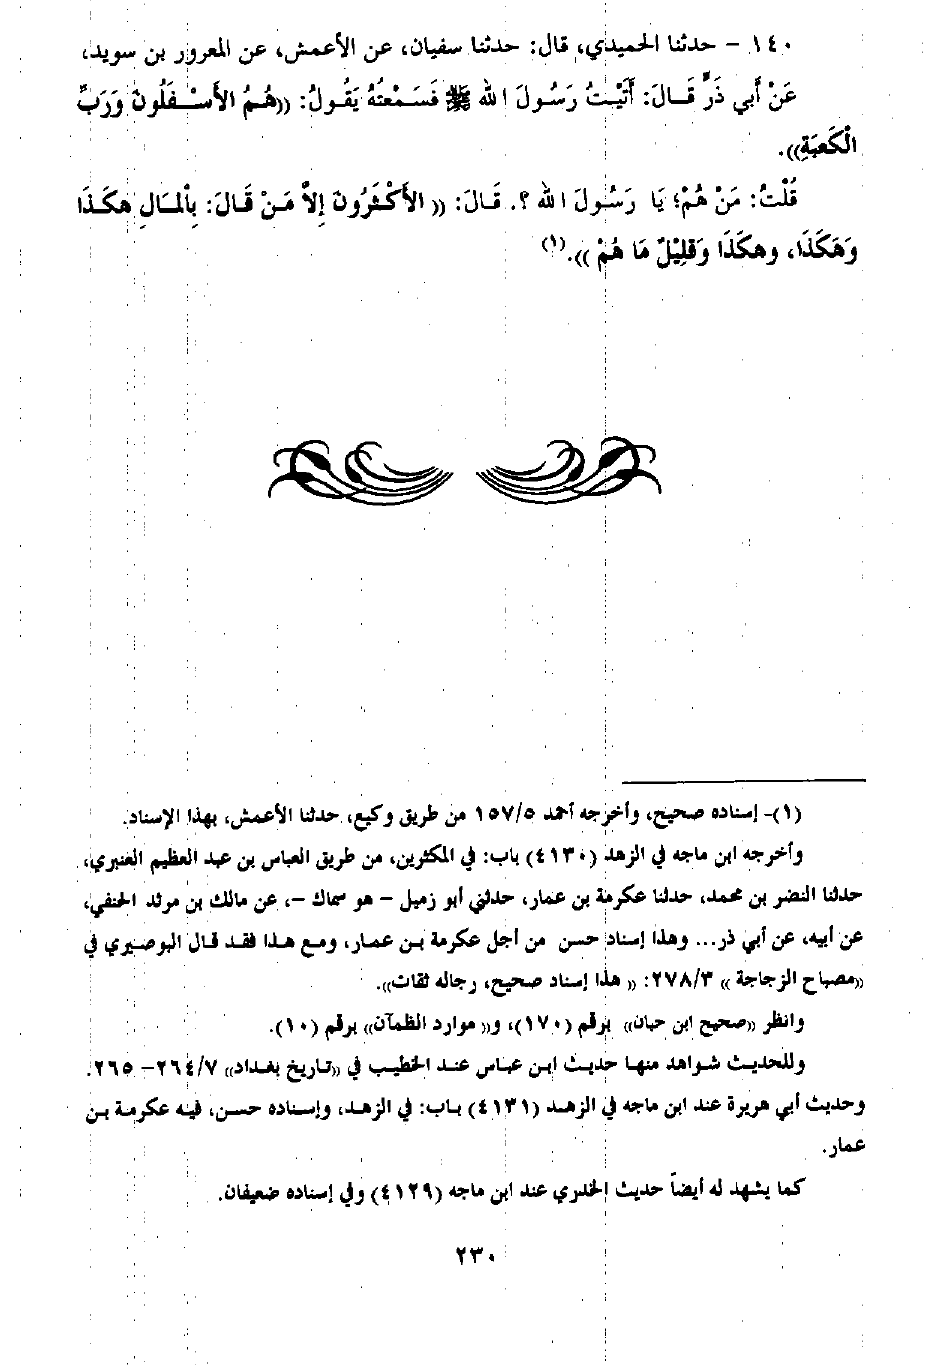 ١٤٠ - حدثنا الحميدي، قال: حدثنا سفيان، عن الأعمش، عن المعرور بن سويد،
عَنْ أَبي ذَرٍّ قَالَ: أَتَيْتُ رَسُولَ اللهِ ﷺ فَسَمِعْتُهُ يَقُولُ: ((هُمُ الأَسْفَلُونَ وَرَبِّ
الْكَعبَةِ)).
قُلْتُ: مَنْ هُمْ؛ يَا رَسُولَ اللهِ ؟. قَالَ: (( الأَكْثَرُونَ إِلاَّ مَنْ قَالَ: بِالْمَالِ هكَذَا
وَهَكَذَا، وهكَذَا وَقَلِيْلٌ مَا هُمْ )).(١)
(١)- إسناده صحيح، وأخرجه أحمد ١٥٧/٥ من طريق وكيع، حدثنا الأعمش، بهذا الإسناد.
وأخرجه ابن ماجه في الزهد (٤١٣٠) باب: في المكثرين، من طريق العباس بن عبد العظيم العنبري،
حدثنا النضر بن محمد، حدثنا عكرمة بن عمار، حدثني أبو زميل - هو سماك -، عن مالك بن مرثد الحنفي،
عن أبيه، عن أبي ذر... وهذا إسناد حسن من أجل عكرمة بن عمار، ومع هذا فقد قال البوصيري في
((مصباح الزجاجة )) ٢٧٨/٣: (( هذا إسناد صحيح، رجاله ثقات)).
وانظر ((صحيح ابن حبان)) برقم (١٧٠)، و(( موارد الظمآن)) برقم (١٠).
وللحديث شواهد منها حديث ابن عباس عند الخطيب في ((تاريخ بغداد)) ٢٦٤/٧- ٢٦٥.
وحديث أبي هريرة عند ابن ماجه في الزهد (٤١٣١) باب: في الزهد، وإسناده حسن، فيه عكرمة بن
عمار.
كما يشهد له أيضاً حديث الخدري عند ابن ماجه (٤١٢٩) وفي إسناده ضعيفان.
٢٣٠